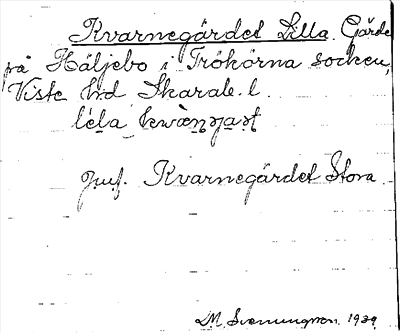 Kvarnegärdet Lilla. Gärde
på Häljebo i Trökörna socken,
Viste hrd Skarab. l.
léla kwæ̀ṇɟaṣt
Jmf. Kvarnegärdet Stora
M. Svenungson. 1939